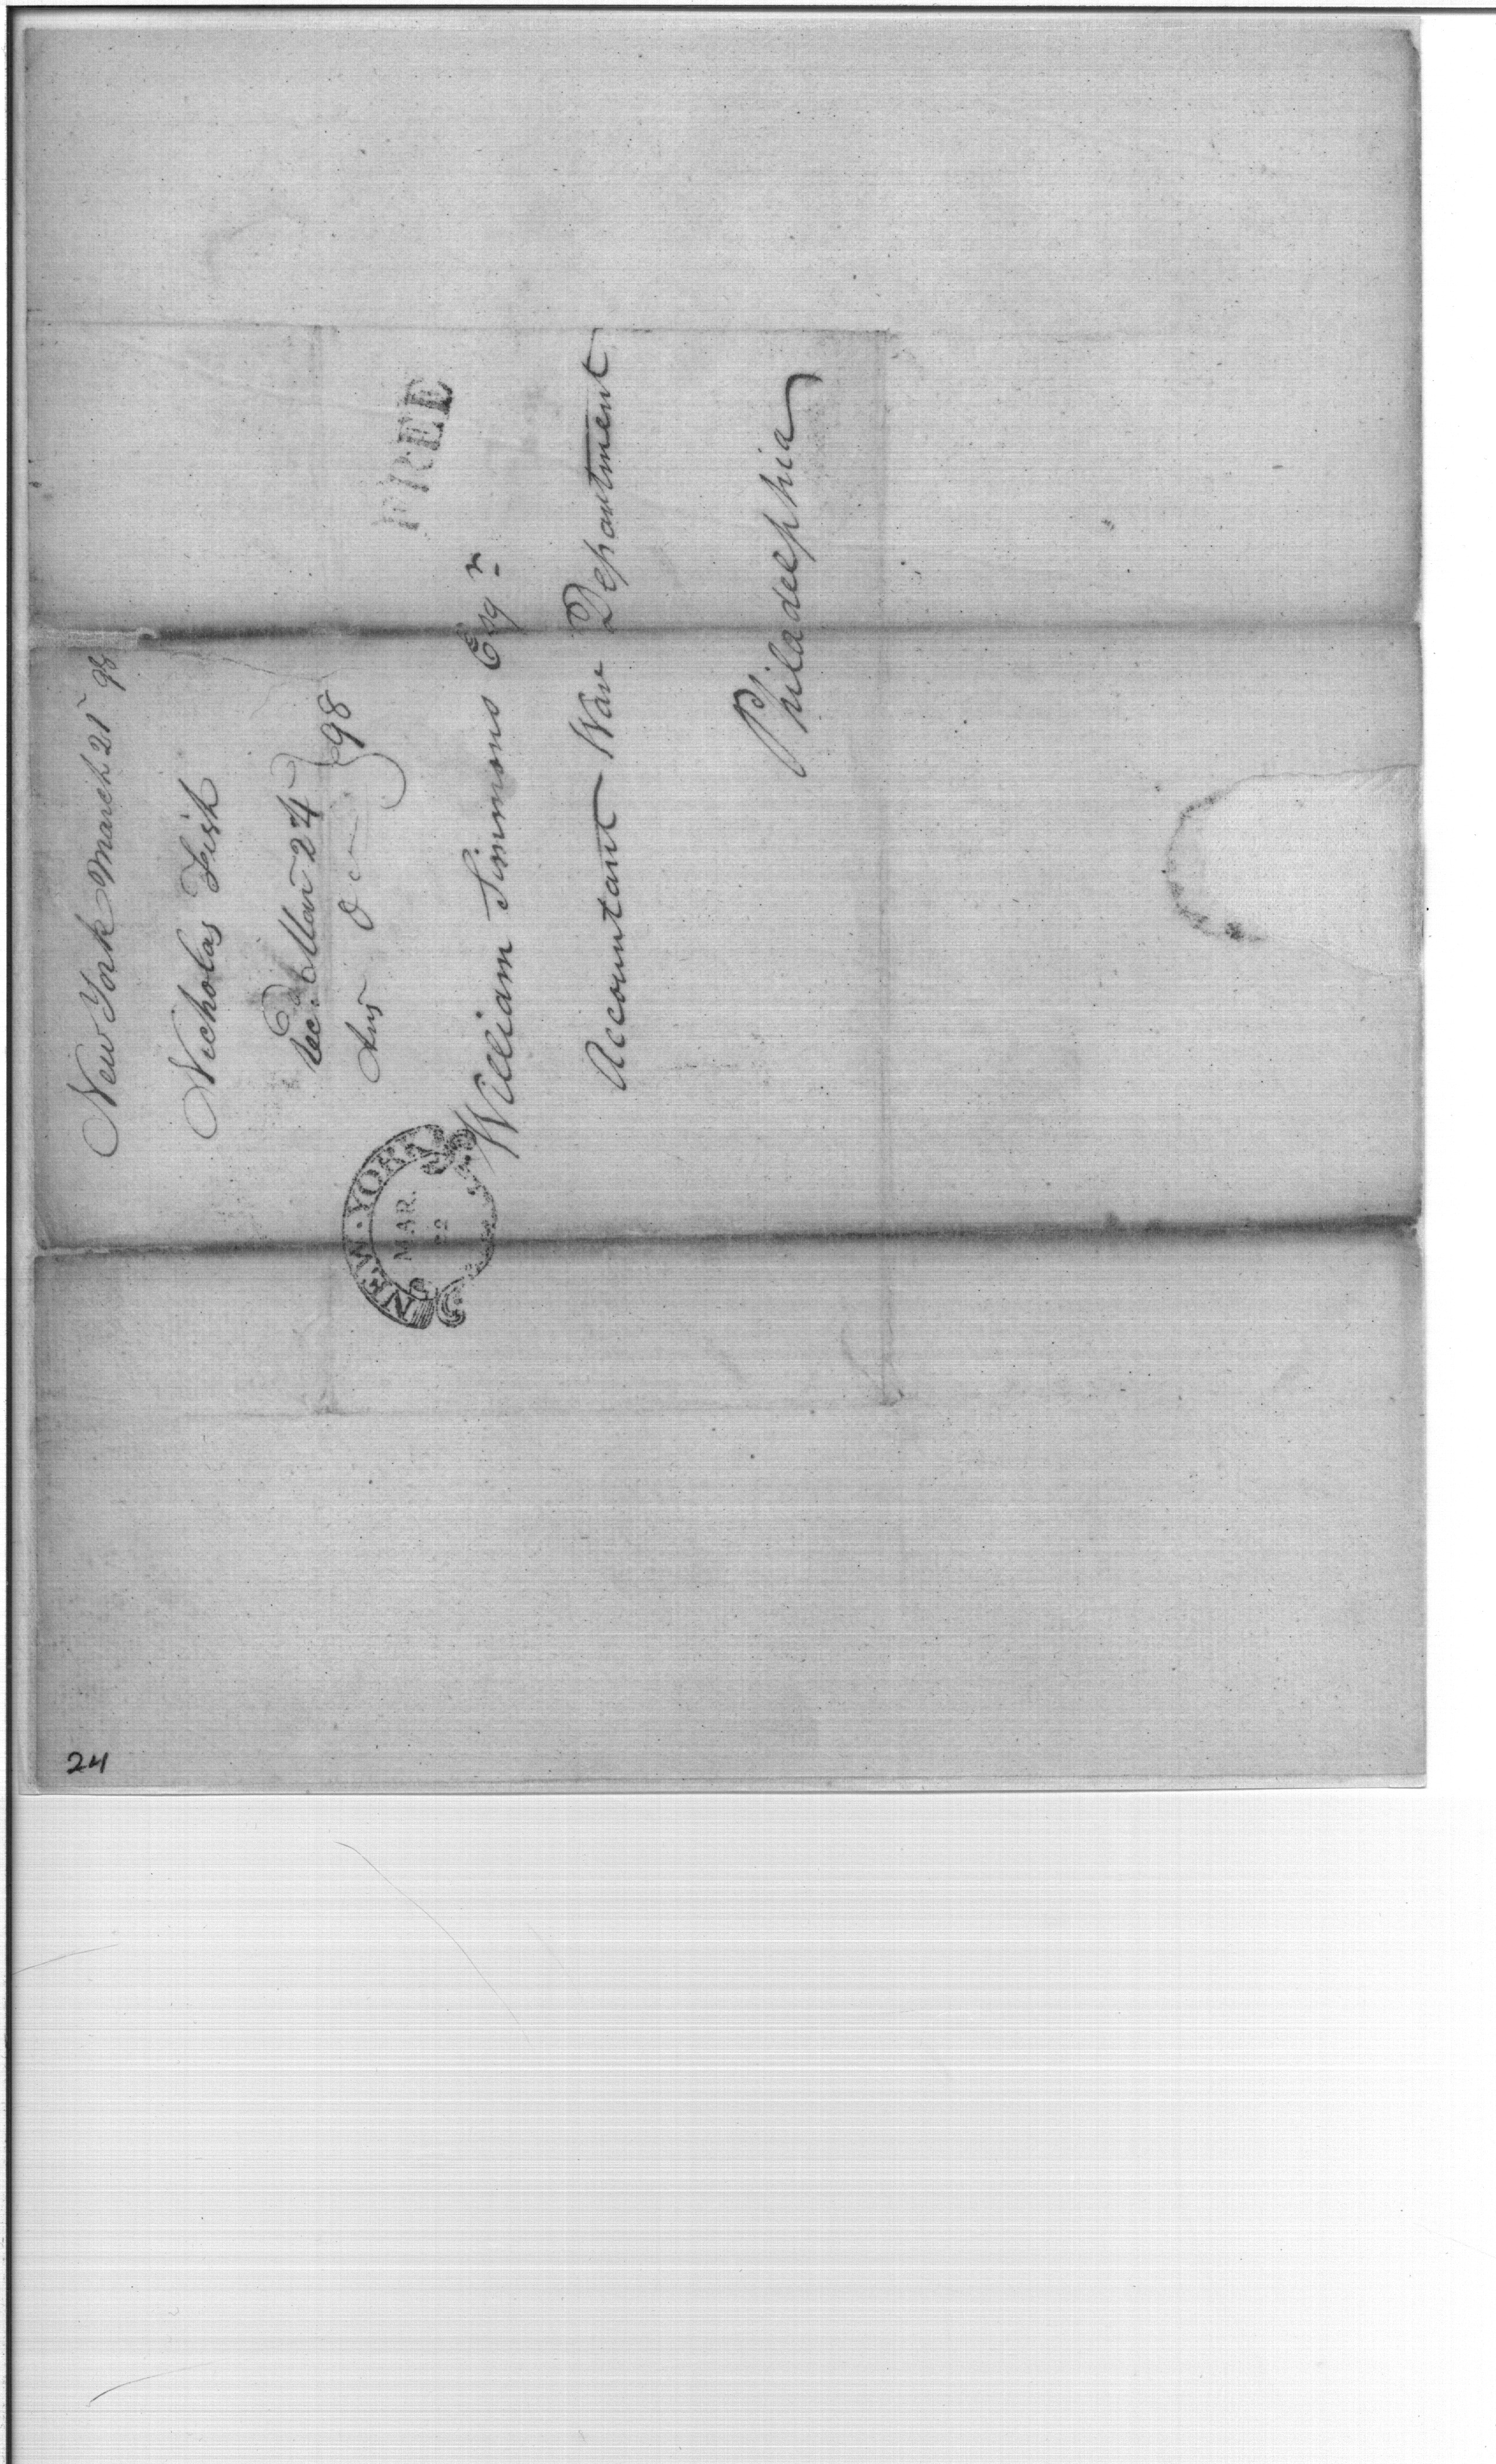 New York March 21 98
Nicholas Fish
Rec.d Mar 24
Ans Do } 98
FREE
NEW-YORK
MAR.
22
William Simmons Esqr
Accountant War Department
Philadelphia
24